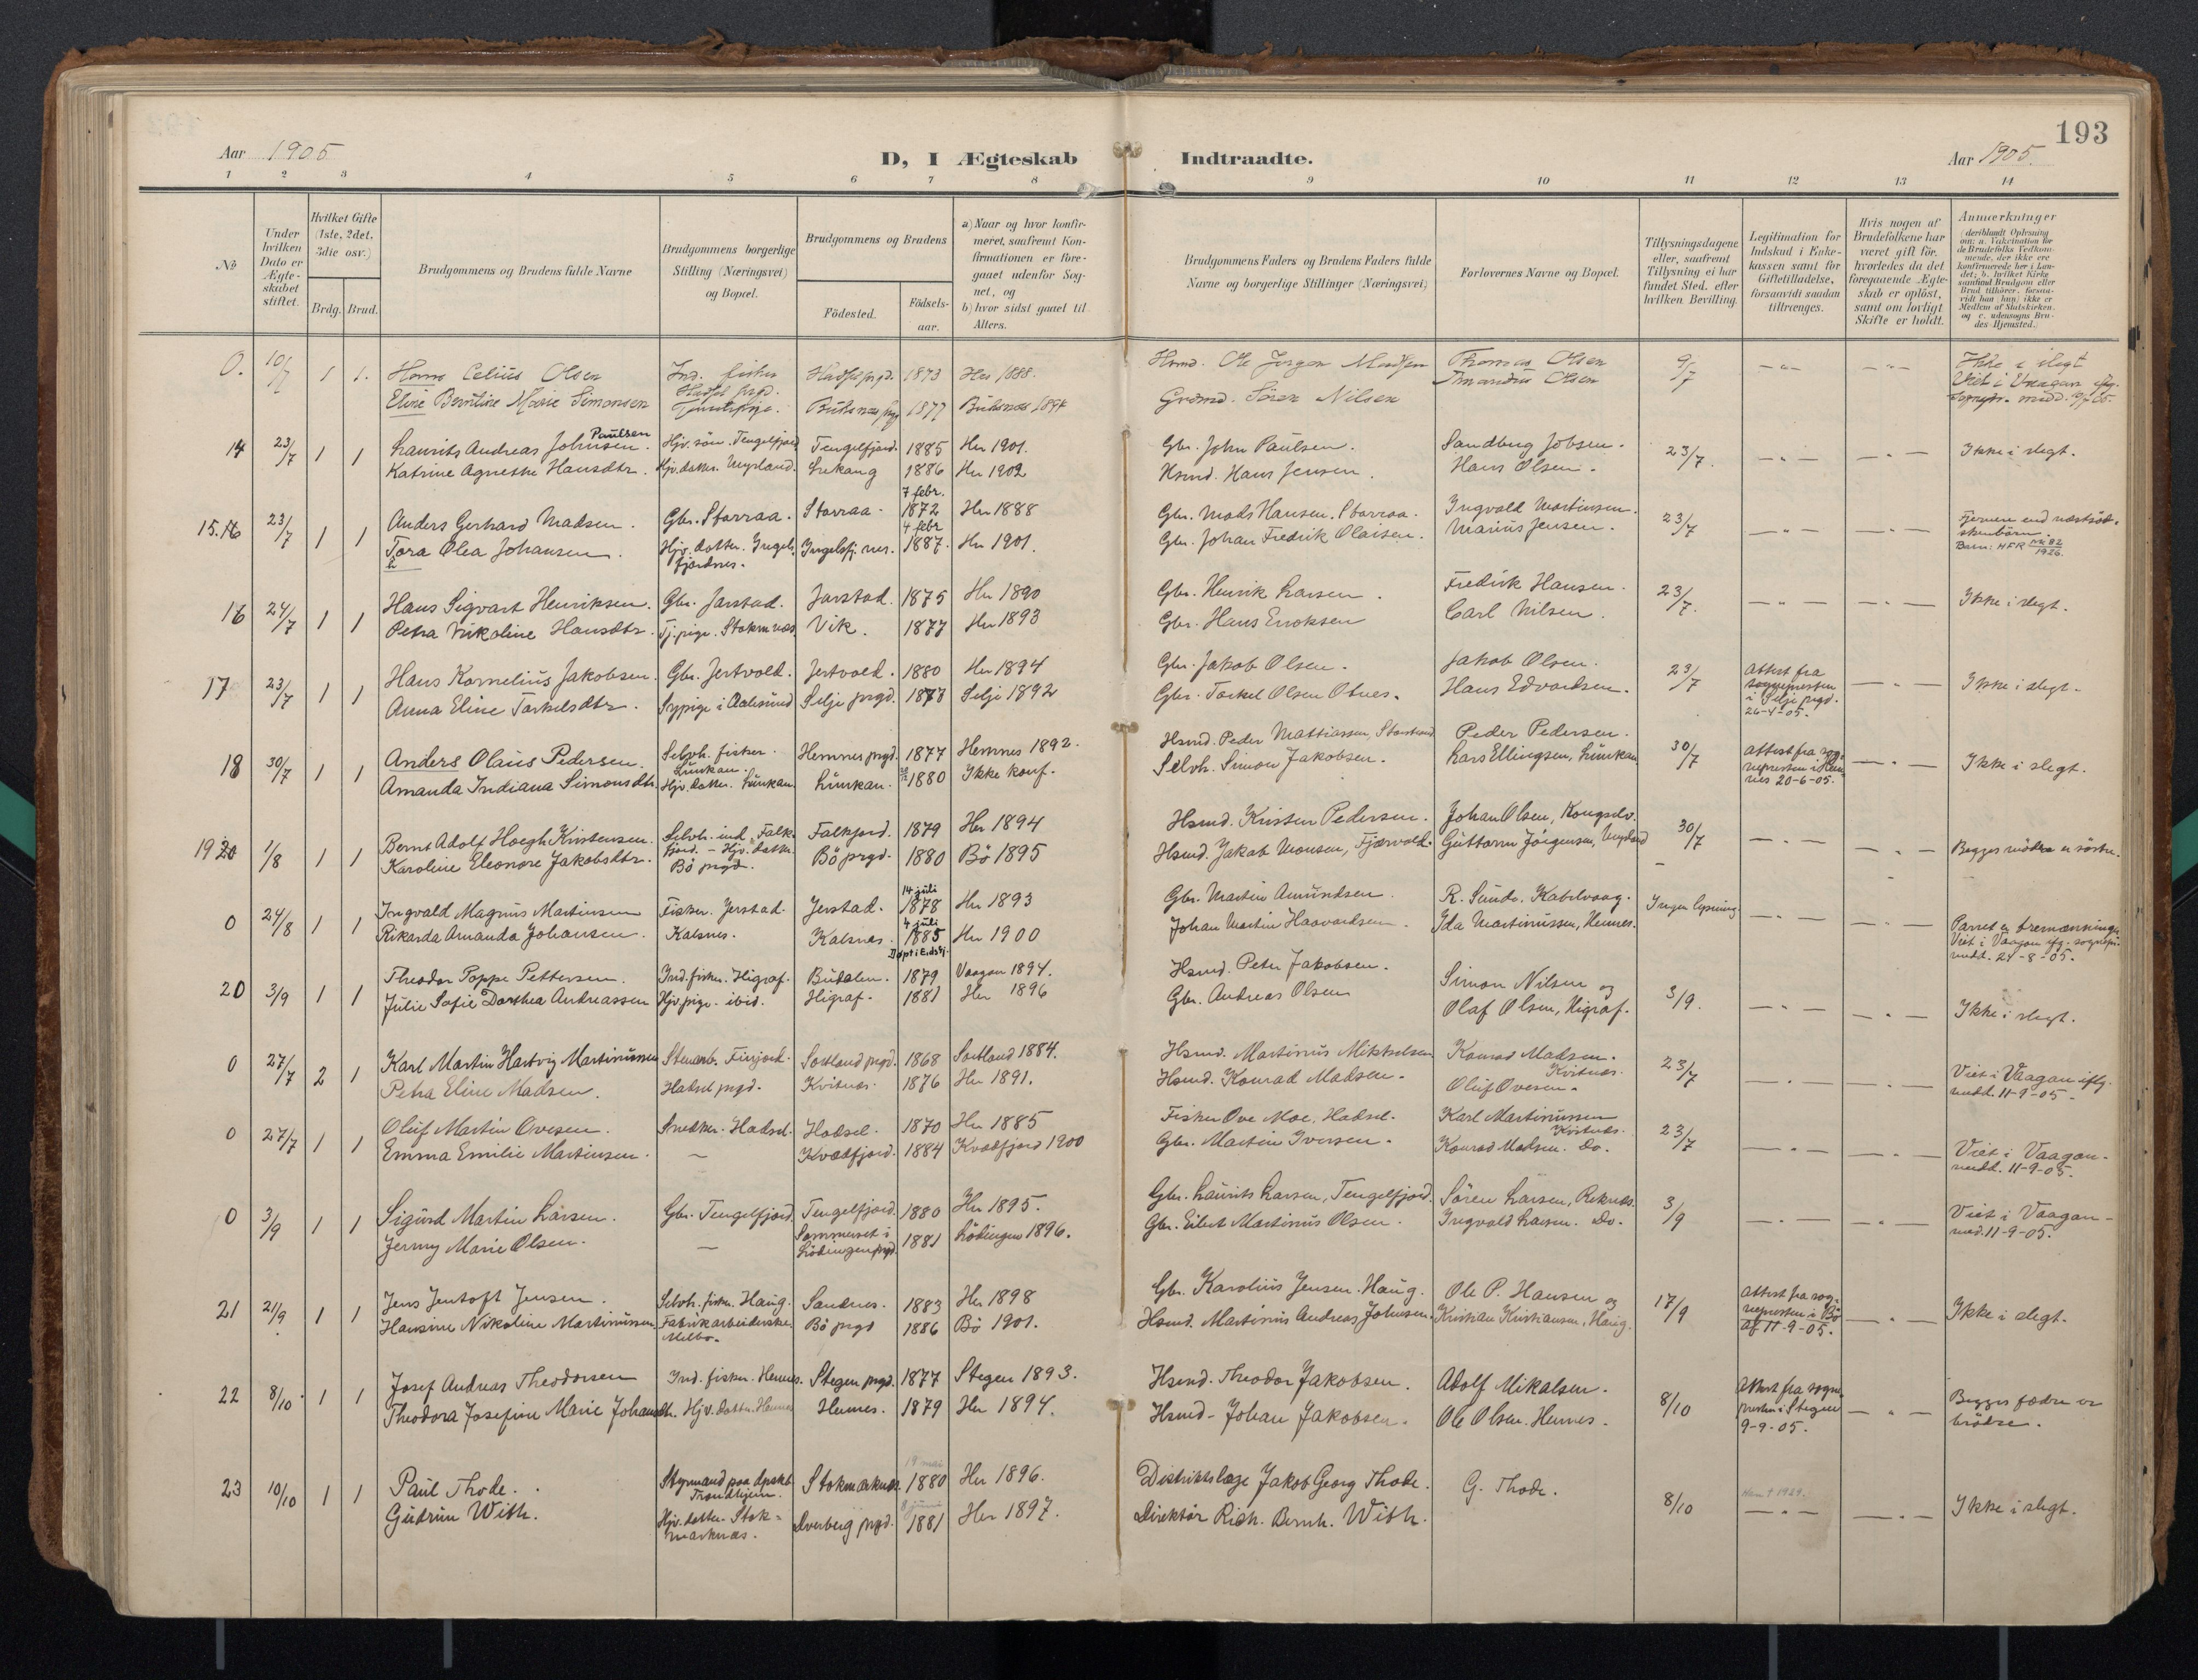 193
Aar 1905
D, I Ægteskab Indtraadte.
Aar 1905.
1 2 3 4 5 6 7 8 9 10 11 12 13 14
No
Under hvilken Dato er Ægteskabet stiftet.
Hvilket Gifte (1ste, 2det, 3die osv.)
Brdg. Brud.
Brudgommens og Brudens fulde Navne
Brudgommens borgerlige Stilling (Næringsvei) og Bopæl.
Brudgommens og Brudens
Födested.
Födselsaar.
a) Naar og hvor konfirmeret, saafremt Konfirmationen er foregaaet udenfor Sognet, og
b) hvor sidst gaaet til Alters.
Brudgommens Faders og Brudens Faders fulde Navne og borgerlige Stillinger (Næringsvei)
Forlovernes Navne og Bopæl.
Tillysningsdagene eller, saafremt Tillysning ei har fundet Sted, efter hvilken Bevilling.
Legitimation for Indskud i Enkekassen samt for Giftetilladelse, forsaavidt saadan tiltrænges.
Hvis nogen af Brudefolkene har været gift för, hvorledes da det foregaaende Ægteskab er oplöst, samt om lovligt Skifte er holdt.
Anmærkninger (deriblandt Oplysning om: a. Vakcination for de Brudefolks Vedkommende, der ikke ere konfirmerede her i Landet; b. hvilket Kirkesamfund Brudgom eller Brud tilhörer, forsaavidt han (hun) ikke er Medlem af Statskirken, og c. udensogns Brudes Hjemsted.)
0. 10/7 1 1. Hans Celius Olsen Ind. fisker Hadsel prgd. 1873 Her 1888. Hsmd. Ole Jörgen Madsen Thomas Olsen 9/7 Ikke i slegt
Eline Berntine Marie Simonsen Buksnes prgd 1877 Buksnes 1894 Grdmd. Sören Nilsen Amandus Olsen Viet i Vaagan ifg. sognepr. medd. 9/7 05.
14 23/7 1 1 Laurits Andreas Johnsen. Paulsen Hjv. sön. Tengelfjord Tengelfjord. 1885 Her 1901. Gbr. John Paulsen. Sandberg Jobsen. 23/7. Ikke i slegt.
Katrine Agnethe Hansdtr. Hjv. datter. Uvgsland. Lrekang 1886 Her 1902 Hsmd. Hans Jensen. Hans Olsen.
15. 16 23/7 1 1 Anders Gerhard Madsen. Gbr. Storraa. Storraa. 7 febr. 1872 Her 1888 Gbr. Mads Hansen. Storraa. Ingvald Martinsen. 23/7 Fjernere end næstsödskenbörn.
Tora Olea Johansen. Hjv. datter. Ingelsfjordnes. Ingelsfj. nes. 4 febr 1887. Her 1901. Gbr. Johan Fredrik Olaisen. Marius Jensen. Barn: HFR Nr 82 1926.
16 24/7 1 1 Hans Sigvart Henriksen. Gbr. Jarstad. Jarstad. 1875 Her 1890 Gbr. Henrik Larsen. Fredrik Hansen. 23/7. Ikke i slegt.
Petra Nikoline Hansdtr. Tj. pige. Stokmnæs Vik. 1877 Her 1893 Gbr. Hans Enoksen Carl Nilsen.
17 23/7 1 1 Hans Kornelius Jakobsen. Gbr. Jertvold. Jertvold. 1880 Her 1894 Gbr. Jakob Olsen. Jakob Olsen. 23/7 Attest fra sognepresten i Selje prgd. 26-4-05. Ikke i slegt.
Anna Eline Tarkelsdtr. Sypige i Aalesund Selje prgd. 1878 Selje 1892 Gbr. Torkel Olsen Otnes. Hans Edvardsen.
18 30/7 1 1 Anders Olaus Pedersen. Selvh. fisker. Lunkan. Hemnes prgd. 1877 Hemnes 1892. Hsmd. Peder Mattiassen, Storstrand Peder Pedersen. 30/7 Attest fra sognepresten i Hemnes 20-6-05. Ikke i slegt.
Amanda Indiana Simonsdtr. Hjv. datter. Lunkan. Lunkan. 1880 Ikke konf. Selvh. Simon Jakobsen. Lars Ellingsen, Lunkan
19 20 1/8 1 1 Bernt Adolf Hoegh Kristensen. Selvh. ind. Falkfjord. Falkfjord. 1879 Her 1894 Hsmd. Kristen Pedersen. Johan Olsen, Kongselv. 30/7 Begges mödre er söstre.
Karoline Eleonore Jakobsdtr. Hjv. datter. Bö prgd. Bö prgd. 1880 Bö 1895 Hsmd. Jakob Monsen, Fjærvold. Guttorm Jörgensen, Uvgsland
0 24/8 1 1 Ingvald Magnus Martinsen Fisker. Jerstad. Jerstad. 14 juli 1878 Her 1893 Gbr. Martin Amundsen. R. Sunde. Kabelvaag. Ingen lysning. Parret er tremænninger
Rikarda Amanda Johansen. Kalsnes. Kalsnes. 4 juli 1885 Her 1900 Johan Martin Haavardsen. Ida Martinussen, Hennes. Viet i Vaagan ifg. sognepr. medd. 24-8-05.
Döpt i Eidsfj.
20 3/9 1 1 Theodor Poppe Pettersen. Ind. fisker. Higraf. Budalen. 1879 Vaagan 1894. Hsmd. Peter Jakobsen. Simon Nilsen og 3/9. Ikke i slegt.
Julie Sofie Dorthea Andreassen Hjv. pige. ibid. Higraf. 1881 Her 1896 Gbr. Andreas Olsen Olaf Olsen, Higraf.
0 27/7 2 1 Karl Martin Hartvig Martinussen Stenarb. Finjord. Sortland prgd. 1868 Sortland 1884. Hsmd. Martinus Mikkelsen Konrad Madsen. Kvitnes. 23/7 Viet i Vaagan iflg. medd. 11-9-05.
Petra Eline Madsen. Hadsel prgd. Kvitnes. 1876 Her 1891. Hsmd. Konrad Madsen. Oluf Ovesen.
0 27/7 1 1 Oluf Martin Ovesen. Snedker. Hadsel. Hadsel. 1870 Her 1885 Fisker Ove Moe, Hadsel. Karl Martinussen Kvitnes. 23/7 Viet i Vaagan. medd. 11-9-05.
Emma Emilie Martinsen. Kvædfjord. 1884 Kvædfjord 1900 Gbr. Martin Iversen. Konrad Madsen. do.
0 3/9 1 1 Sigurd Martin Larsen. Gbr. Tengelfjord. Tengelfjord. 1880 Her 1895. Gbr. Laurits Larsen, Tengelfjord. Sören Larsen, Reknes. 3/9 Viet i Vaagan - med. 11-9-05.
Jenny Marie Olsen. Sommerset i Lödingen prgd. 1881 Lödingen 1896. Gbr. Eilert Martinus Olsen. Ingvald Larsen. do.
21 21/9 1 1 Jens Jentoft Jensen. Selvh. fisker. Haug. Sandnes. 1883 Her 1898 Gbr. Karolius Jensen. Haug. Ole P. Hansen og 17/9 Attest fra sognepresten i Bö af 11-9-05. Ikke i slegt.
Hansine Nikoline Martinussen. Fabrikarbeiderske. Melbo. Bö prgd 1886 Bö 1901. Hsmd. Martinus Andreas Johnsen. Kristian Kristiansen, Haug.
22 8/10 1 1 Josef Andreas Theodorsen Ind. fisker. Hennes. Stegen prgd. 1877 Stegen 1893. Hsmd. Theodor Jakobsen. Adolf Mikalsen. 8/10 Attest fra sognepresten i Stegen 9-9-05. Begges fædre er brödre.
Theodora Josefine Marie Johansdtr. Hjv. datter. Hennes Hennes. 1879 Her 1894. Hsmd. Johan Jakobsen. Ole Olsen. Hennes.
23 10/10 1 1 Paul Thode. Styrmand paa dpskb. Trondhjem. Stokmarknæs. 19 mai 1880 Her 1896. Distriktslæge Jakob Georg Thode. G. Thode. 8/10 Ikke i slegt.
Gudrun With. Hjv. datter. Stokmarknæs. Dverberg prgd. 8 juni 1881 Her 1897. Direktör Rich. Bernh. With.